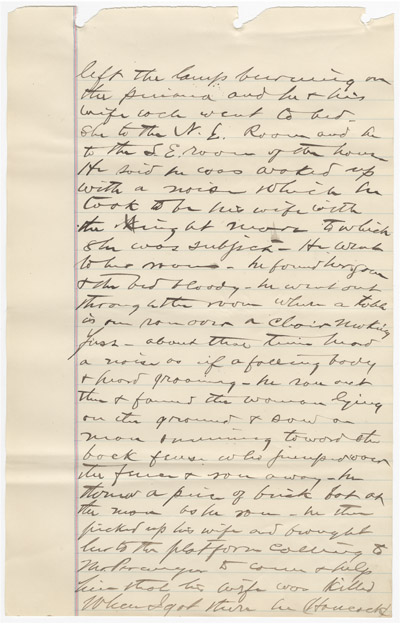 left the lamp burning on
the piano and he & his
wife each went to bed -
She to the N. E. Room and he
to the S. E. room of the house
He said he was waked up
with a noise which he
took to be his wife with
the Night mare to which
she was subject - He went
to her room - he found her gone
& the bed bloody - he went out
through the room where a table
is an ran over a chair making
fuss - about that time heard
a noise as if a falling body
& heard groaning - he ran out
then & found the woman lying
on the ground & saw a
man running toward the
back fence who jumped over
the fence & ran away - he
threw a piece of brick bat at
the man as he ran - he then
picked up his wife and brought
her to the platform calling to
Mr to come & help
him that his wife was killed
When I got there he Hancock